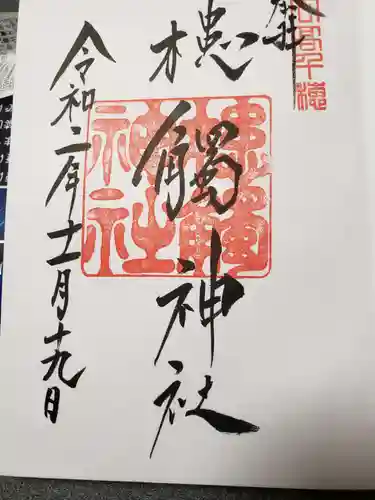 奉拝
高千穂
槵觸神社
槵觸神社
令和二年十一月十九日